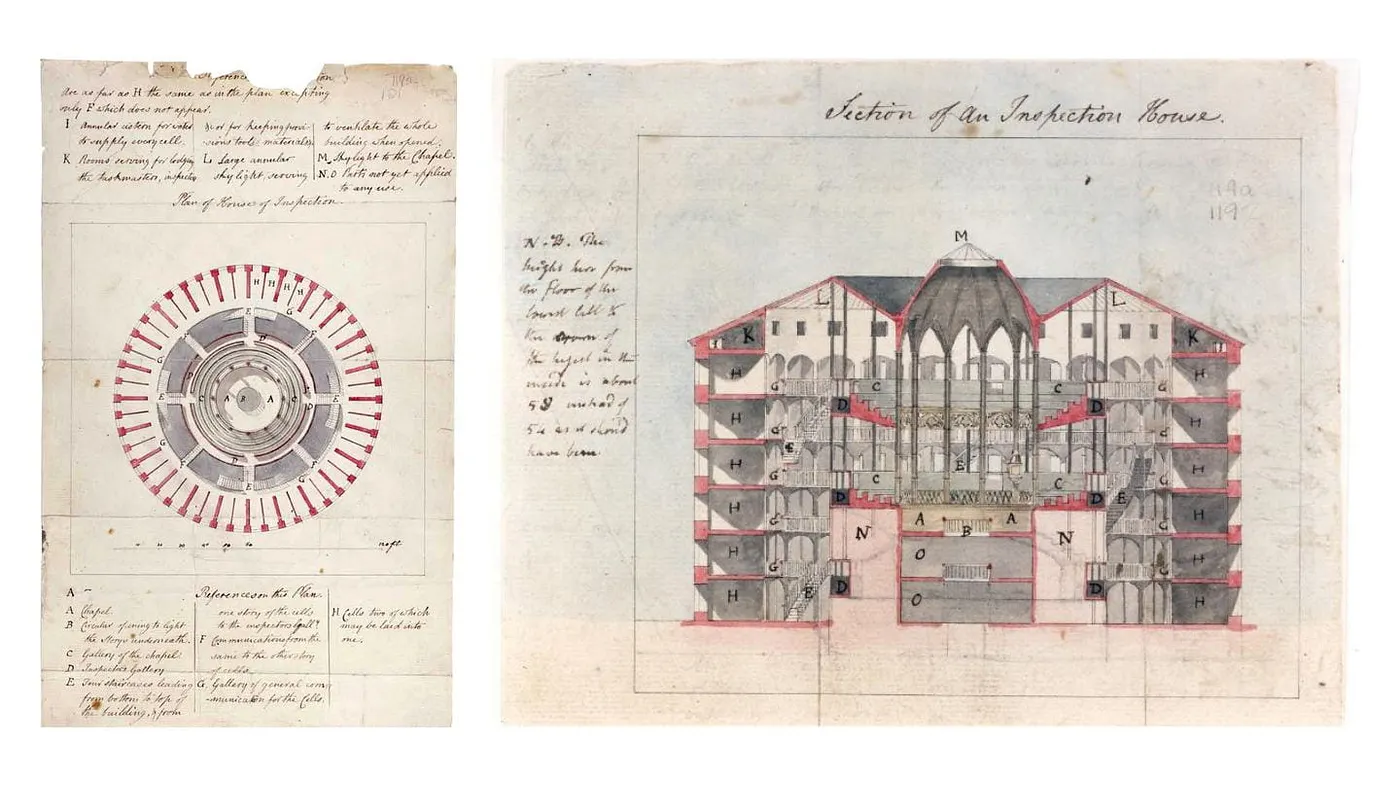 are as far as H the same as in the plan excepting
only F which does not appear.
I Annular cistern for water
to supply every cell.
K Rooms serving for lodging
the taskmasters, inspectors
or for keeping provi
sions tools materials
L Large annular
sky light, serving
to ventilate the whole
building when opened.
M Sky light to the Chapel.
N.O Parts not yet applied
to any use.
Plan of House of Inspection
H H H H
E G
G F
D
G F
E C A B A C D E
G
F F
D
E G
A
References on this Plan
A Chapel
B Circular opening to light
the Story underneath.
C Gallery of the chapel
D Inspectors Gallery
E Four staircases leading
from bottom to top of
the building, & from
one story of the cells
to the inspectors
F Communications from the
same to the other story
of cells
G, Gallery of general com
-munication for the Cells.
H Cells two of which
may be laid into
one.
Section of an Inspection House.
119a
119
N.B. The
height here from
the floor of the
lowest Cell to
the crown of
the highest in the
inside is about
58 instead of
54 as it should
have been.
M
L L
K K
H G C C G H
D D
H H
E
H G C E C G H
H D D E H
A A
N B N
H G O G H
H E D O D H